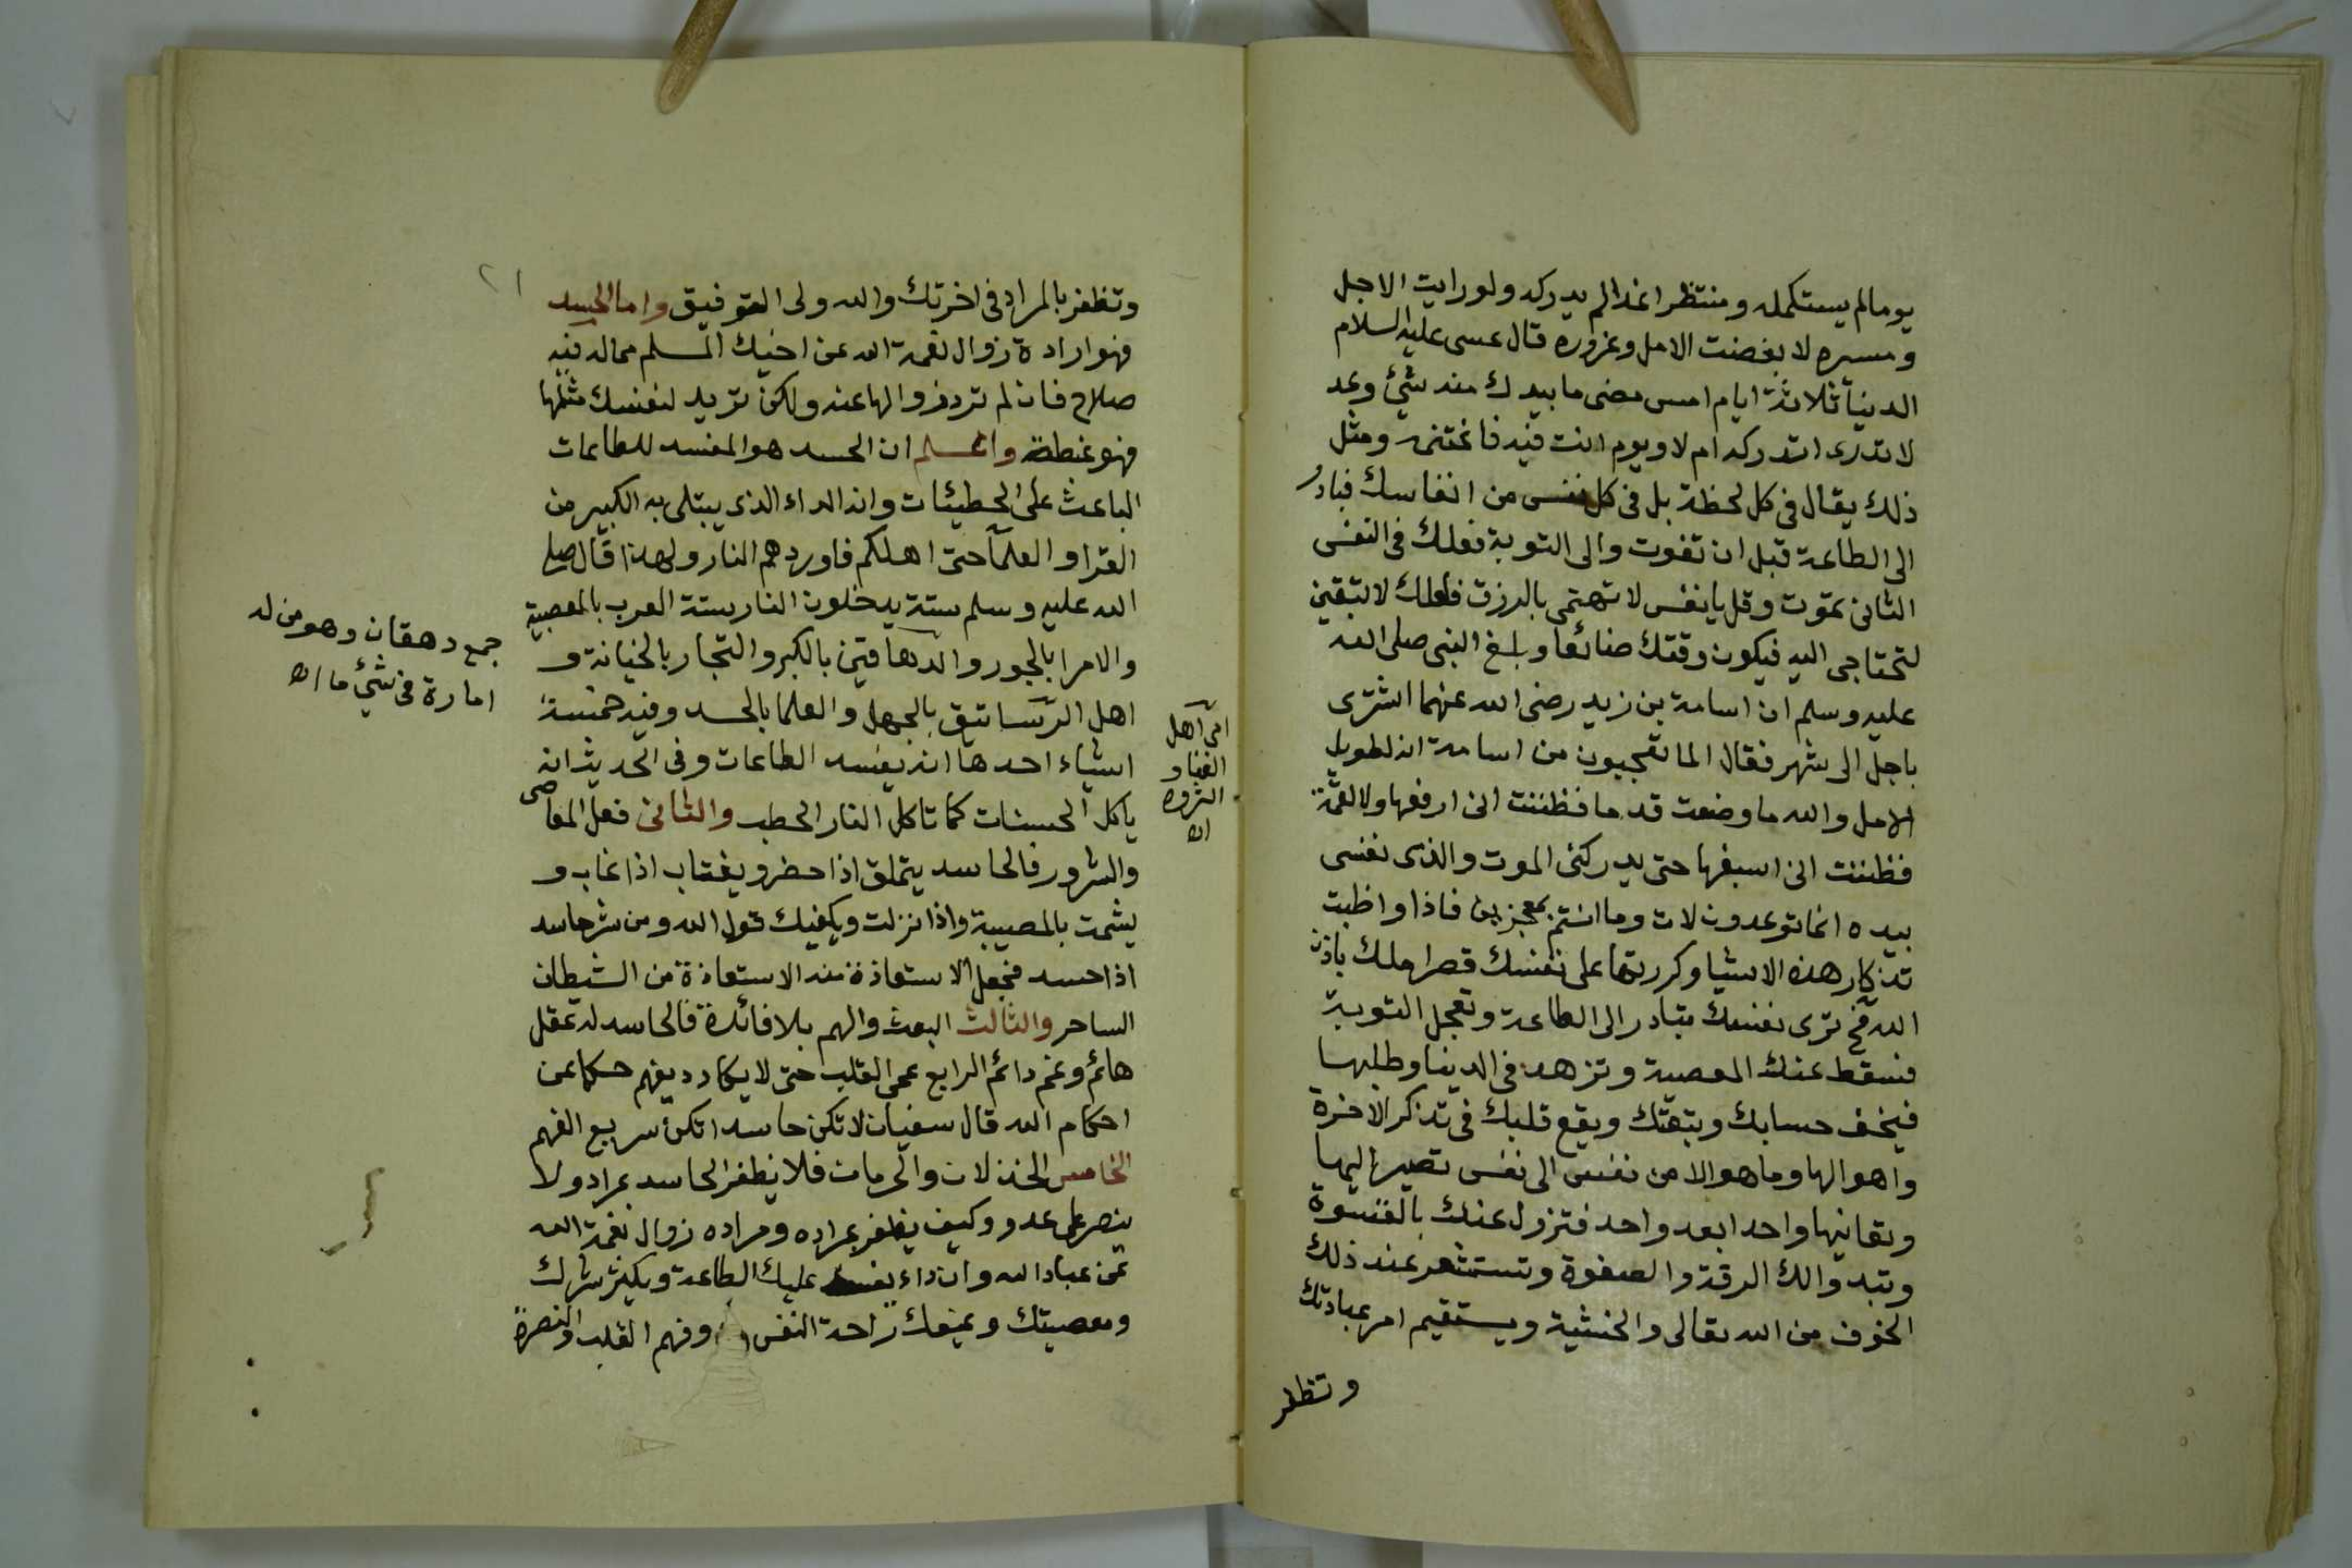 يوما لم يستكمله ومنتظرا غدا لم يدركه ولو رايت الاجل
ومسيره لابغضت الامل وغروره قال عيسى عليه السلام
الدنيا ثلاثة ايام امس مضى ما بيدك منه شئ وغد
لا تدرى اتدركه ام لا ويوم انت فيه فاغتنمه ومثل
ذلك يقال فى كل لحظة بل فى كل نفس من انفاسك فبادر
الى الطاعة قبل ان تفوت والى التوبة فعلك فى النفس
الثانى تموت وقل يا نفس لا تهتمى بالرزق فلعلك لا تبقين
لتحتاجى اليه فيكون وقتك ضائعا وبلغ النبى صلى الله
عليه وسلم ان اسامة بن زيد رضى الله عنهما اشترى
باجل الى شهر فقال الما تعجبون من اسامة انه لطويل
الامل والله ما وضعت قدما فظننت انى ارفعها ولا لقمة
فظننت انى اسيغها حتى يدركنى الموت والذى نفسى
بيده انما توعدون لات وما انتم بمعجزين فاذا واظبت
تذكار هذه الاشيا وكررتها على نفسك قصر املك باذن
الله فح ترى نفسك تبادر الى الطاعة وتعجل التوبة
فتسقط عنك المعصية وتزهد فى الدنيا وطلبها
فيخف حسابك وتبعتك ويقع قلبك فى تذكر الاخرة
واهوالها وما هو الا من نفس الى نفس تصير اليها
وتعاينها واحدا بعد واحد فتزول عنك بالقسوة
وتبدوا لك الرقة والصفوة وتستشعر عند ذلك
الخوف من الله تعالى والخشية ويستقيم امر عبادتك
وتظفر
٢١
وتظفر بالمراد فى اخرتك والله ولى التوفيق واما الحسد
فهو ارادة زوال نعمة الله عن اخيك المسلم مما له فيه
صلاح فان لم ترد زوالها عنه ولكن تريد لنفسك مثلها
فهو غبطة واعلم ان الحسد هو المفسد للطاعات
الباعث على الخطيئات وانه الداء الذى يبتلى به الكبير من
القرا والعلما حتى اهلكهم فاوردهم النار ولهذا قال صلى
الله عليه وسلم ستة يدخلون النار بستة العرب بالعصبية
والامرا بالجور والدهاقين بالكبر والتجار بالخيانة و
اهل الرساتيق بالجهل والعلما بالحسد وفيه خمسة
اشياء احدها انه يفسد الطاعات وفى الحديث انه
ياكل الحسنات كما تاكل النار الحطب والثانى فعل المعاصى
والشرور فالحاسد يتملق اذا حضر ويغتاب اذا غاب و
يشمت بالمصيبة واذا نزلت ويكفيك قول الله ومن شر حاسد
اذا حسد فجعل الاستعاذة منه الاستعاذة من الشيطان
الساحر والثالث التعب والهم بلا فائدة فالحاسد له عقل
هائم وغم دائم الرابع عمى القلب حتى لا يكاد ديفهم حكما عن
احكام الله قال سفيان لا تكن حاسدا تكن سريع الفهم
الخامس الخذلان والحرمان فلا يظفر الحاسد بمراد ولا
ينصر على عدو وكيف يظفر بمراده ومراده زوال نعمة الله
عن عباد الله وان داء يفسد عليك الطاعة ويكثر شرك
ومعصيتك ويمنعك راحة النفس وفهم القلب والنصرة
جمع دهقان وهو من له
امارة فى شئ ما اه
اى اهل
الغنا و
الثروه
اه